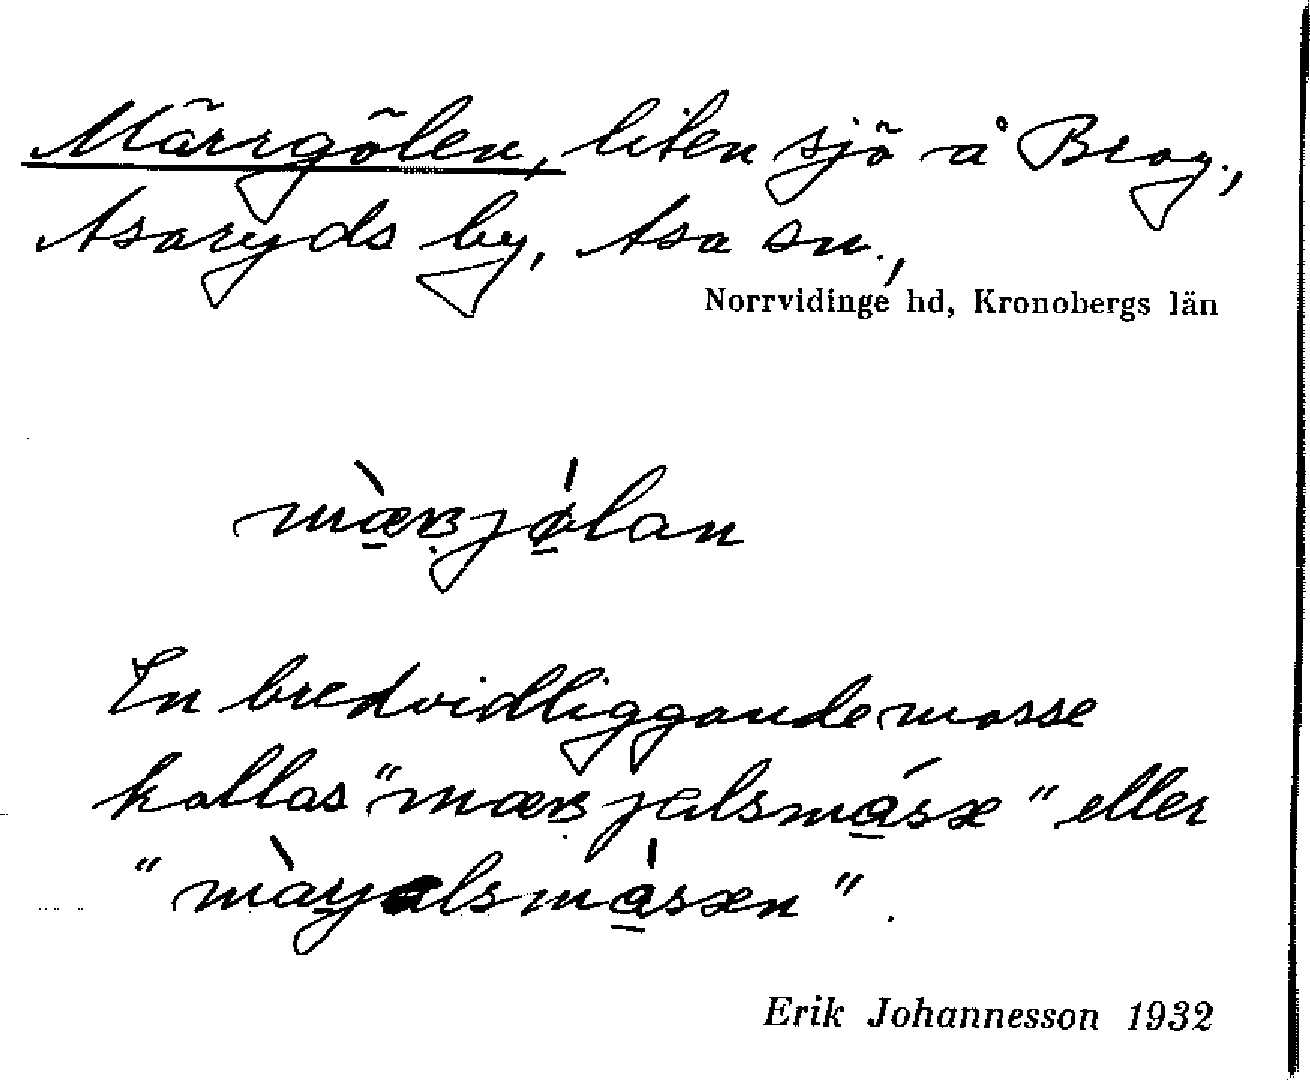 Märrgölen, liten sjö å Brog.,
Asaryds by, Asa sn.,
Norrvidinge hd, Kronobergs län
En bredvidliggande mosse
kallas "                " eller
Erik Johannesson 1932